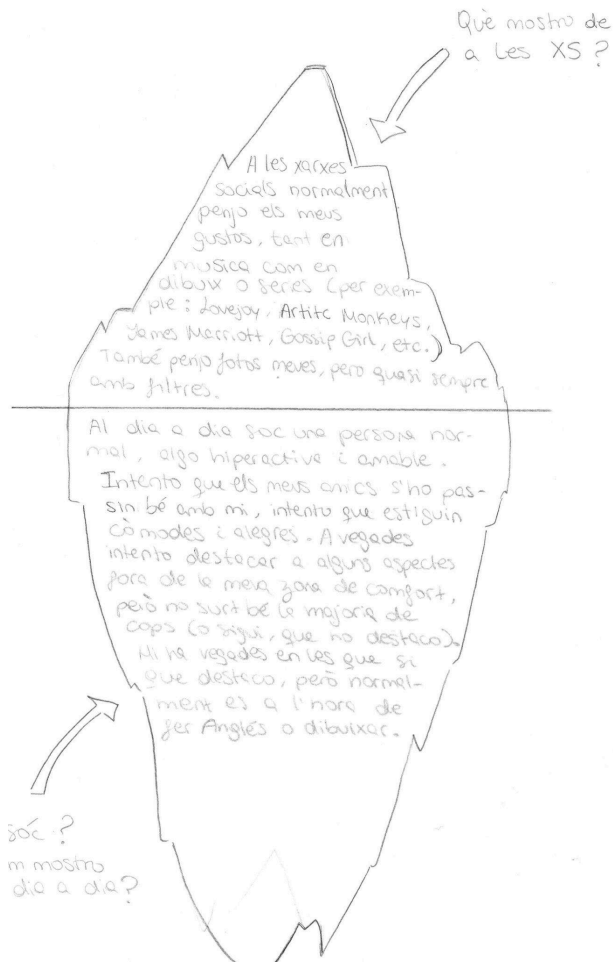 Què mostro de
a les XS?
A les xarxes
socials normalment
penjo els meus
gustos, tant en
musica com en
dibuix o series (per exem-
ple: Lovejoy, Artitc Monkeys,
James Marriott, Gossip Girl, etc.)
També penjo fotos meves, pero quasi sempre
amb filtres.
Al dia a dia soc una persona nor-
mal, algo hiperactiva i amable.
Intento que els meus amics s'ho pas-
sin bé amb mi, intento que estiguin
còmodes i alegres. A vegades
intento destacar a alguns aspectes
fora de la meva zona de comfort,
però no surt be la majoria de
cops (o sigui, que no destaco).
Hi ha vegades en les que si
que destaco, però normal-
ment es a l'hora de
fer Anglés o dibuixar.
sóc?
m mostro
dia a dia?